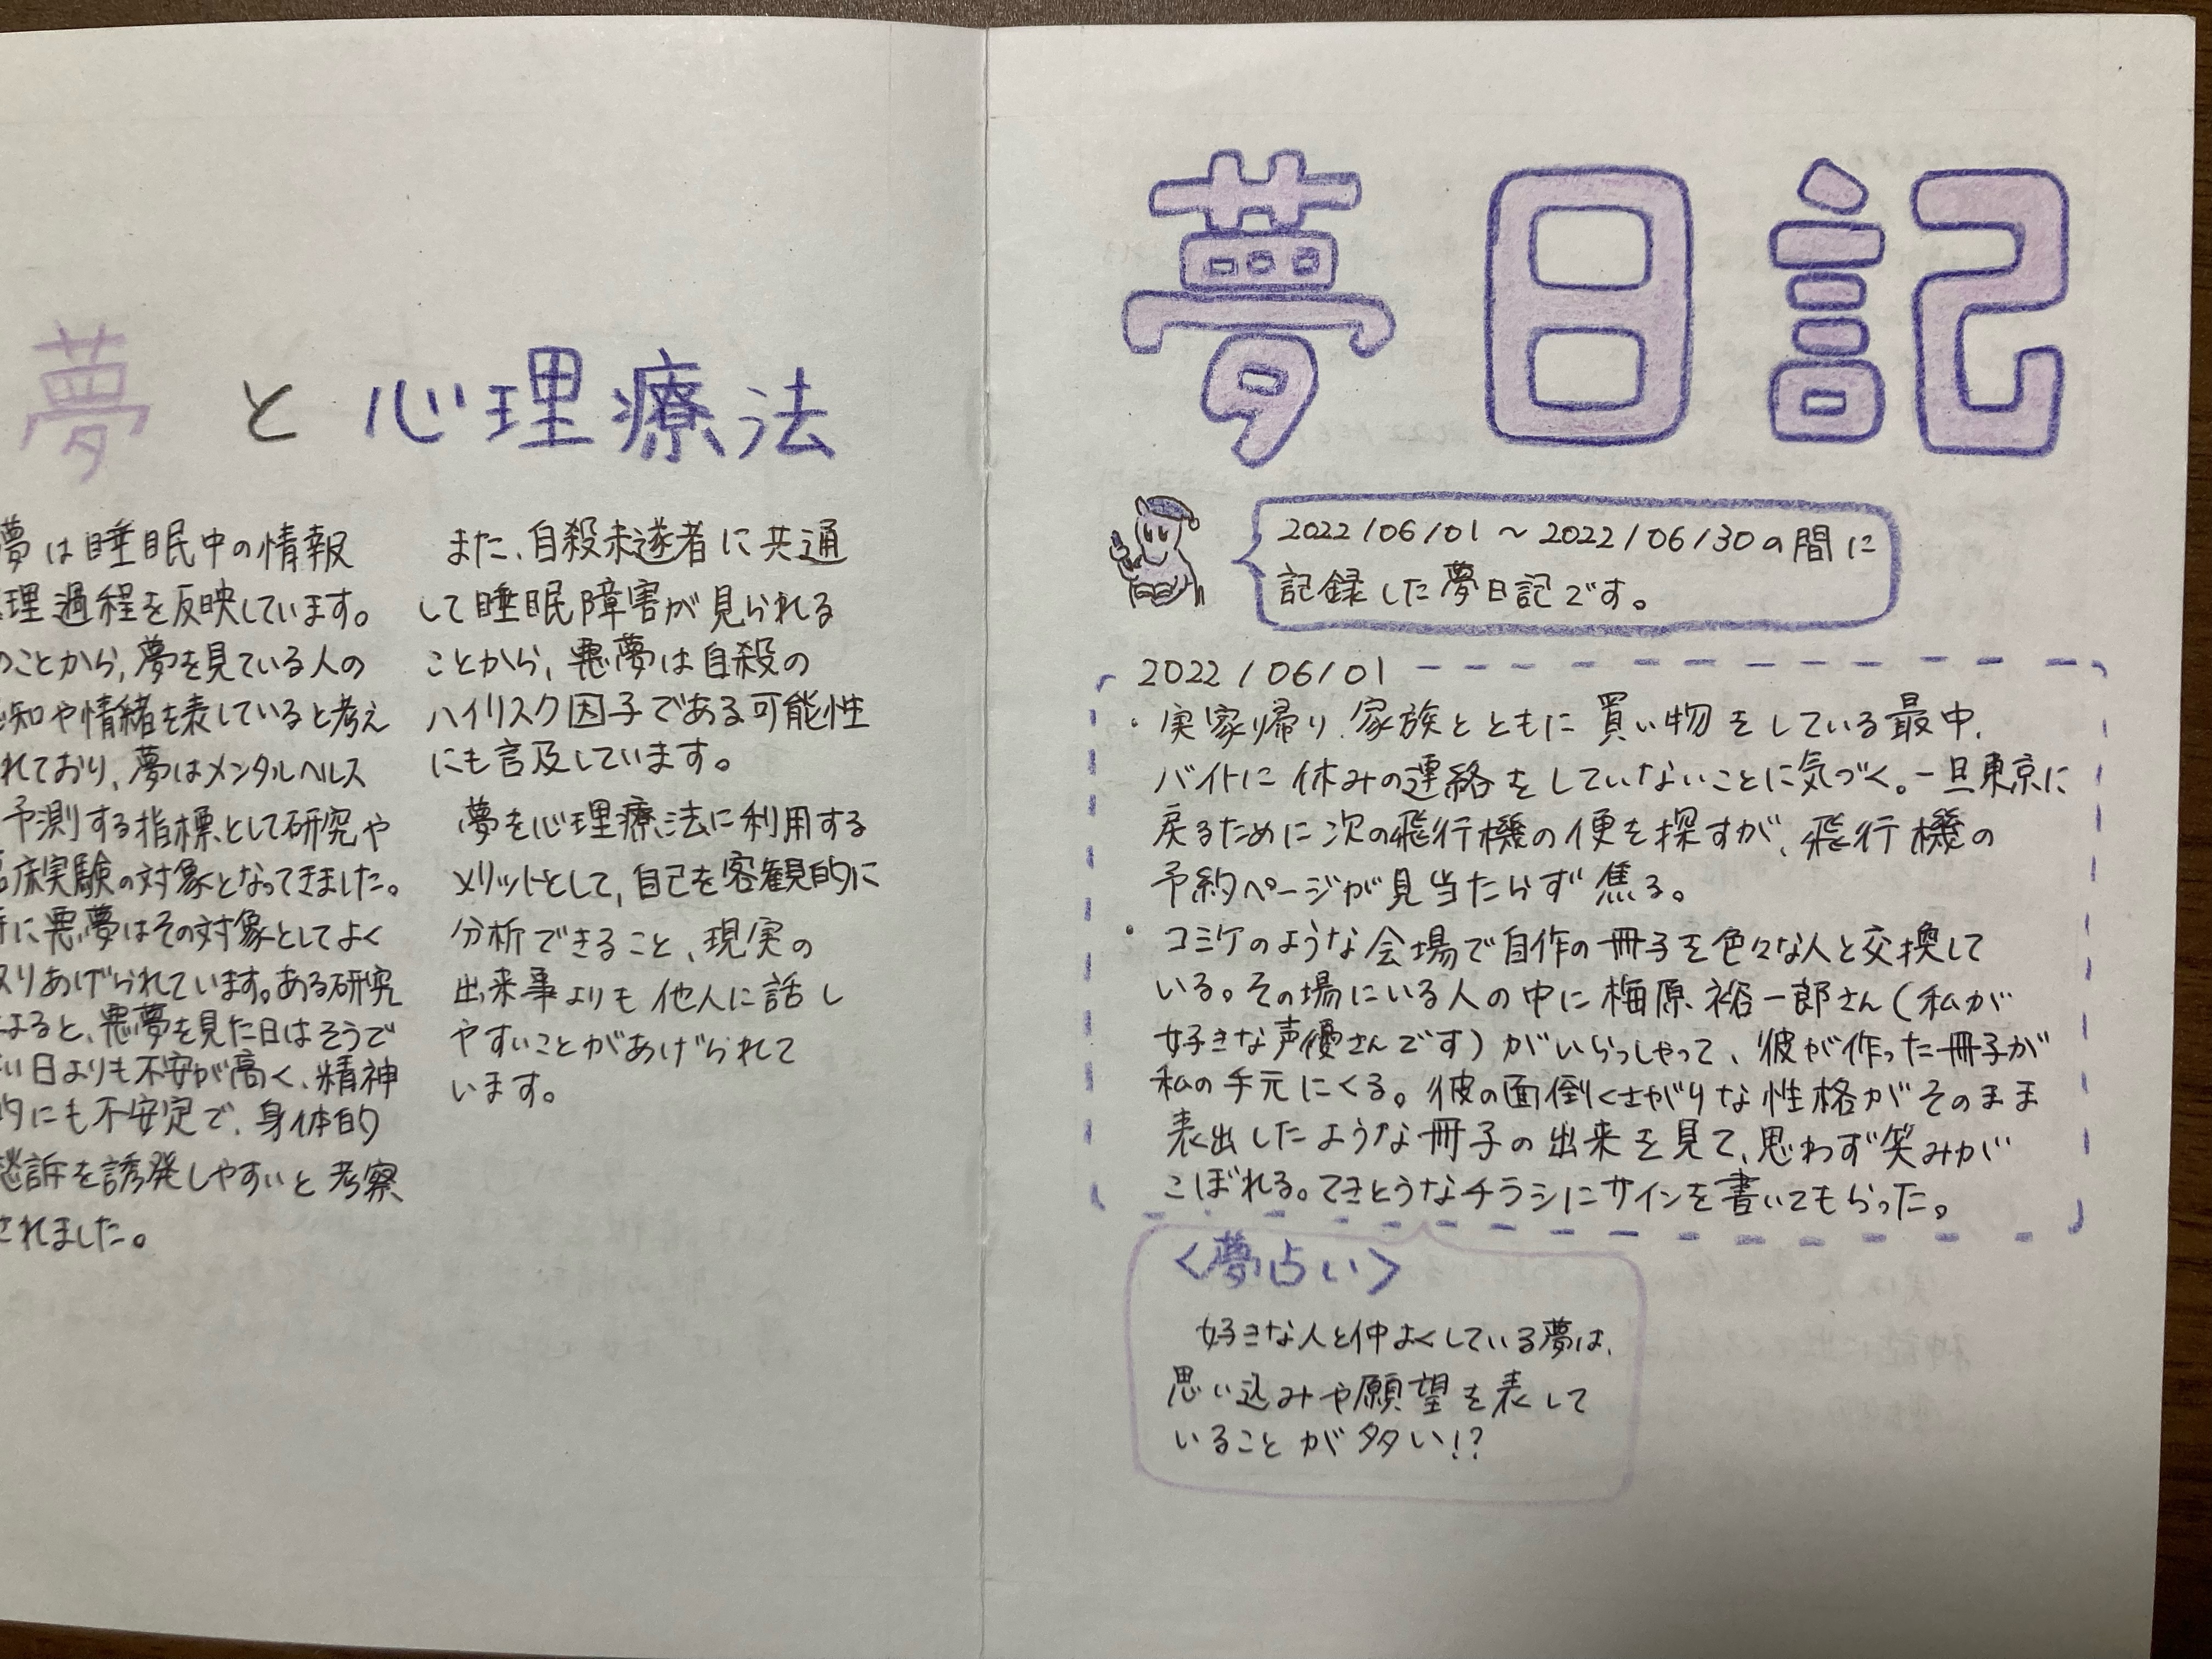 夢と心理療法
夢は睡眠中の情報
理過程を反映しています。
のことから,夢を見ている人の
知や情緒を表していると考え
れており,夢はメンタルヘルス
予測する指標として研究や
床実験の対象となってきました。
に悪夢はその対象としてよく
りあげられています。ある研究
よると、悪夢を見た日はそうで
い日よりも不安が高く、精神
的にも不安定で、身体的
愁訴を誘発しやすいと考察
されました。
また、自殺未遂者に共通
して睡眠障害が見られる
ことから、悪夢は自殺の
ハイリスク因子である可能性
にも言及しています。
夢を心理療法に利用する
メリットとして,自己を客観的に
分析できること、現実の
出来事よりも他人に話し
やすいことがあげられて
います。
夢日記
2022/06/01〜2022/06/30の間に
記録した夢日記です。
2022/06/01
・実家帰り、家族とともに買い物をしている最中、
バイトに休みの連絡をしていないことに気づく。一旦東京に
戻るために次の飛行機の便を探すが、飛行機の
予約ページが見当たらず焦る。
・コミケのような会場で自作の冊子を色々な人と交換して
いる。その場にいる人の中に梅原裕一郎さん(私が
好きな声優さんです)がいらっしゃって、彼が作った冊子が
私の手元にくる。彼の面倒くさがりな性格がそのまま
表出したような冊子の出来を見て、思わず笑みが
こぼれる。てきとうなチラシにサインを書いてもらった。
<夢占い>
好きな人と仲よくしている夢は、
思い込みや願望を表して
いることが多い!?